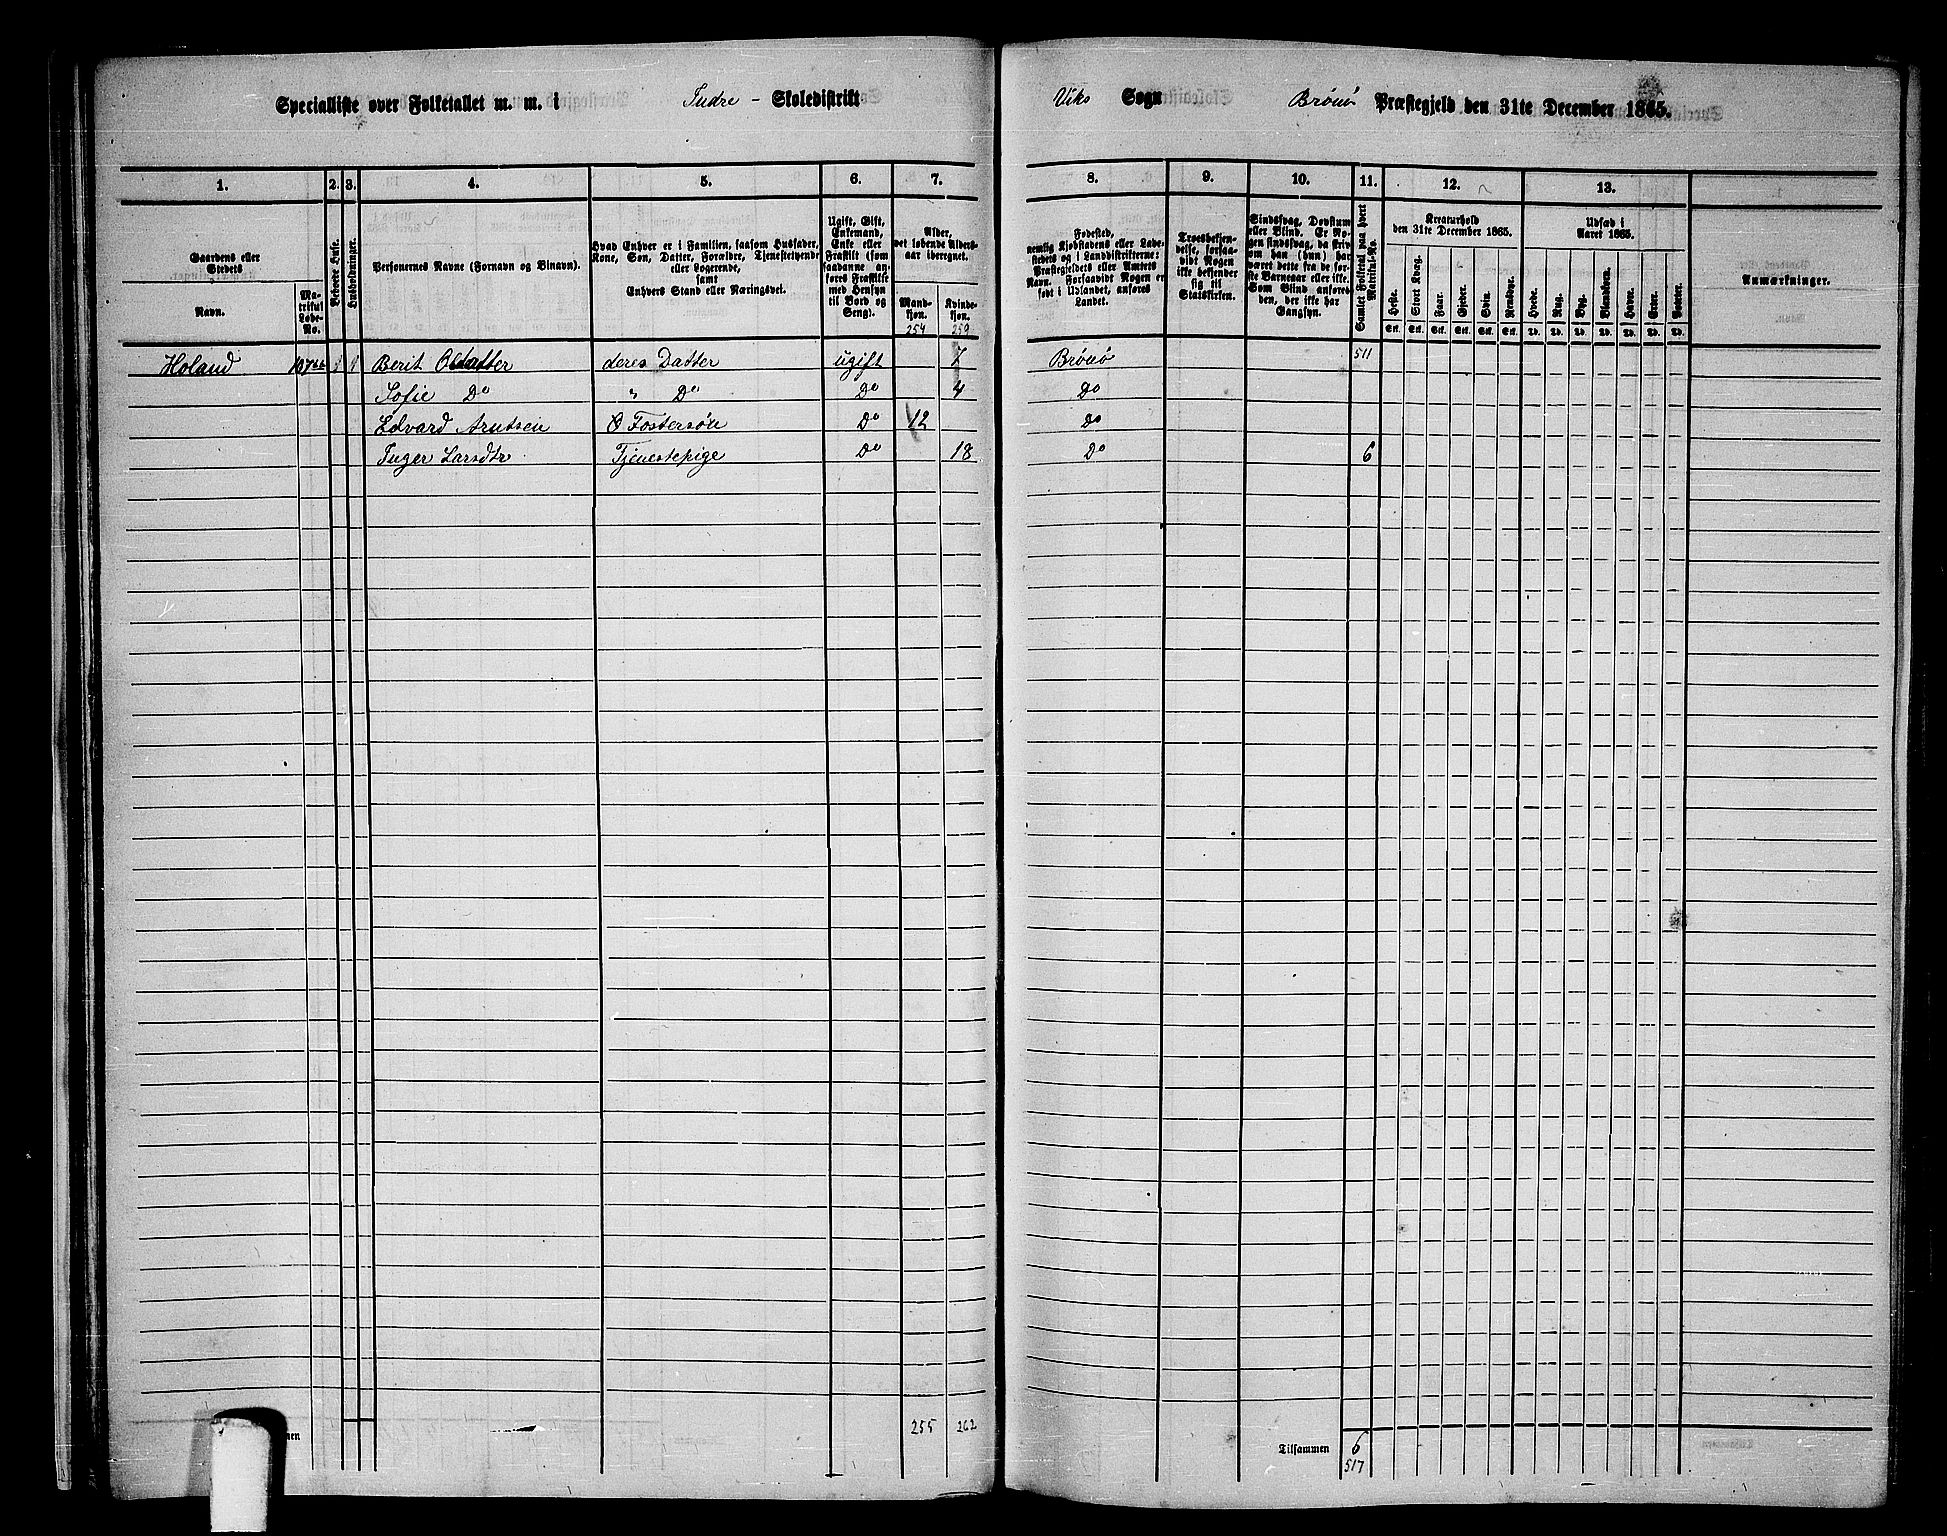 Specialliste over Folketallet m. m. i Indre - Skoledistrikt Viks Sogn Brønø Præstegjeld den 31te December 1865.
1. 2. 3. 4. 5. 6. 7. 8. 9. 10. 11. 12. 13.
Gaardens eller Stedets
Navn.
Matrikul Løbe-No.
Beboede Huse.
Husholdninger.
Personernes Navne (Fornavn og Binavn).
Hvad Enhver er i Familien, saasom Husfader, Kone, Søn, Datter, Forældre, Tjenestetyende eller Logerende,
samt
Enhvers Stand eller Næringsvei.
Ugift, Gift, Enkemand, Enke eller Fraskilt (som saadanne anføres Fraskilte med Hensyn til Bord og Seng).
Alder,
det løbende Alders-
aar iberegnet.
Mand-
kjøn.
Kvinde-
kjøn.
254 259
Fødested,
nemlig Kjøbstadens eller Lade-
stedets og i Landdistrikterne:
Præstegjeldets eller Amtets
Navn. Forsaavidt Nogen er
født i Udlandet, anføres
Landet.
Troesbekjen-
delse, forsaa-
vidt Nogen
ikke bekjender
sig til
Statskirken.
Sindssvag, Døvstum
eller Blind. Er No-
gen sindssvag, da skriv
om han (hun) har
været dette fra de før-
ste Barneaar eller ikke.
Som Blind anføres
den, der ikke har
Gangsyn.
Samlet Folketal paa hvert Matrikul-No.
Kreaturhold
den 31te December 1865.
Heste. Stort Kvæg. Faar. Gjeder. Svin. Rensdyr.
Stk. Stk. Stk. Stk. Stk. Stk.
Udsæd i
Aaret 1865.
Hvede. Rug. Byg. Blandkorn. Havre. Erter. Poteter.
Td. Td. Td. Td. Td. Td. Td.
Anmærkninger.
Holand 1 1 Berit Olsdatter deres Datter ugift 7 Brønø 511
Sofie Do " Do Do 4 Do
Edvard Arntsen Fostersøn Do 12 Do
Inger Larsdtr Tjenestepige Do 18 Do 6
255 262
Tilsammen 6
517